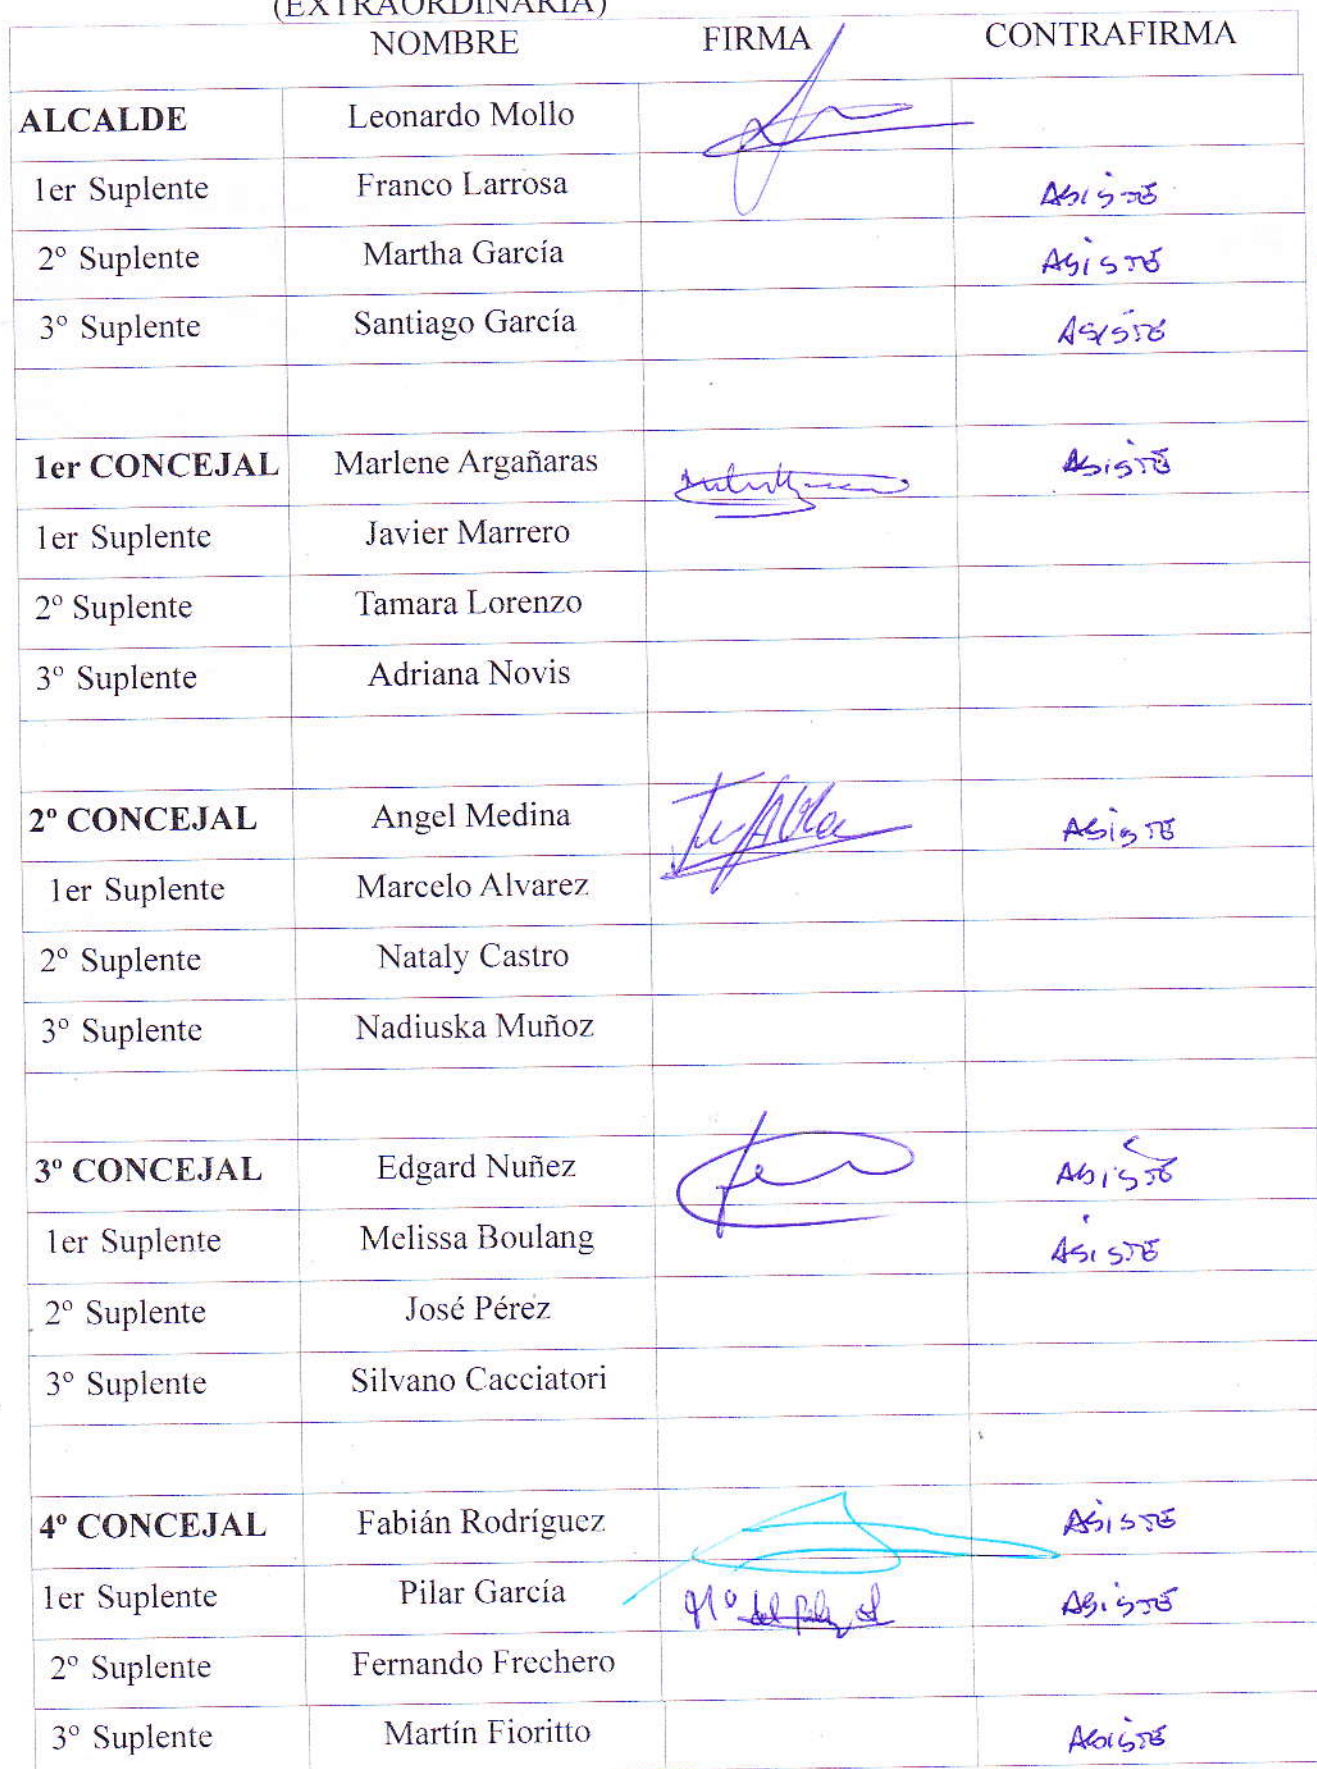 (EXTRAORDINARIA)
NOMBRE FIRMA CONTRAFIRMA
ALCALDE Leonardo Mollo
1er Suplente Franco Larrosa ASISTE
2º Suplente Martha García ASISTE
3º Suplente Santiago García ASISTE
1er CONCEJAL Marlene Argañaras ASISTE
1er Suplente Javier Marrero
2º Suplente Tamara Lorenzo
3º Suplente Adriana Novis
2º CONCEJAL Angel Medina ASISTE
1er Suplente Marcelo Alvarez
2º Suplente Nataly Castro
3º Suplente Nadiuska Muñoz
3º CONCEJAL Edgard Nuñez ASISTE
1er Suplente Melissa Boulang ASISTE
2º Suplente José Pérez
3º Suplente Silvano Cacciatori
4º CONCEJAL Fabián Rodríguez ASISTE
1er Suplente Pilar García ASISTE
2º Suplente Fernando Frechero
3º Suplente Martín Fioritto ASISTE